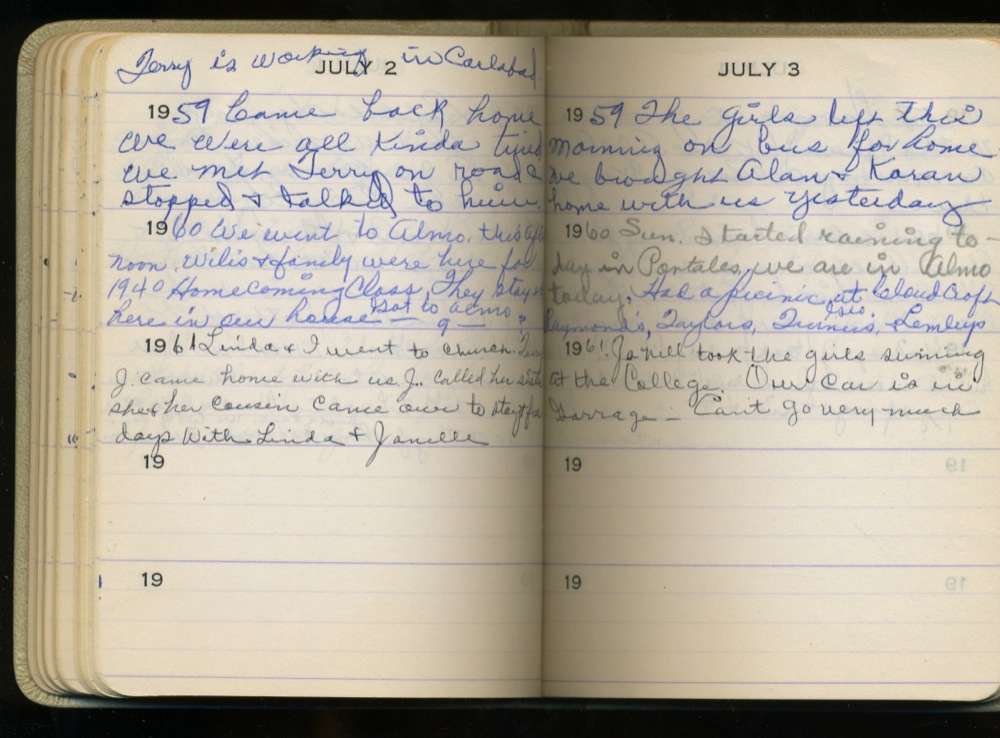 Terry is working in Carlsbad.
JULY 2
1959 Came back home
we were all Kinda tired
we met Terry on road &
stopped & talked to him.
1960 We went to Almo. this aft
noon. Wilis & family were here for
1940 Homecoming Class. They stay
here in our house Got to Almo
9
1961 Linda & I went to church.
J. came home with us. J. called her
she & her cousin came over to stay for
days With Linda & Janelle
19
19
JULY 3
1959 The girls left this
morning on bus for home
we brought Alan & Karan
home with us yesterday
1960 Sun. Started raining to-
day in Portales, we are in Almo
today. Had a picinic at Cloud Croft
Raymond's, Taylors, & Lemleys
1961 took the girls swiming
at the College. Our car is in
Garrage - Can't go very much
19
19